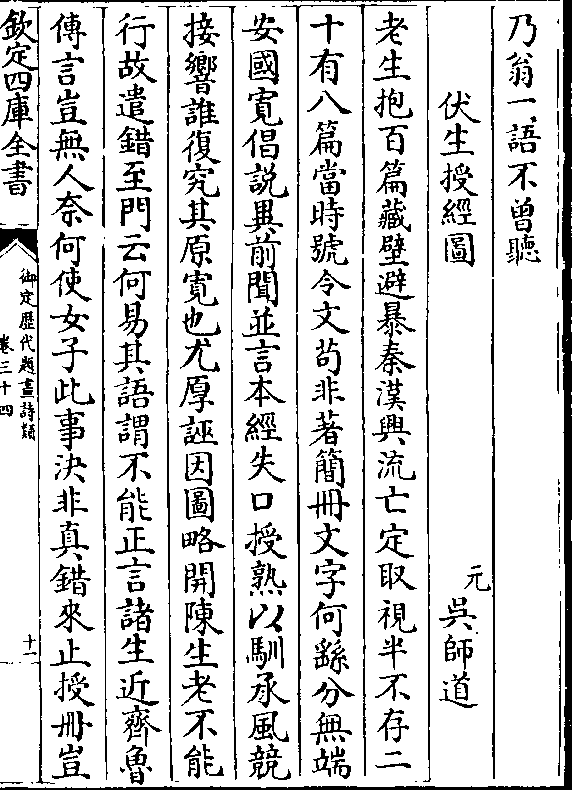 乃翁一語不曾聽
伏生授經圖
元吳師道
老生抱百篇藏壁避暴秦漢興流亡定取視半不存二
十有八篇當時號今文茍非著簡冊文字何繇分無端
安國寛倡説異前聞並言本經失口授熟以馴承風競
接響誰復究其原寛也尤厚誣因圖略開陳生老不能
行故遣錯至門云何易其語謂不能正言諸生近齊魯
傳言豈無人奈何使女子此事決非真錯來止授冊豈
欽定四庫全書
御定歴代題畫詩類
卷三十四
十一